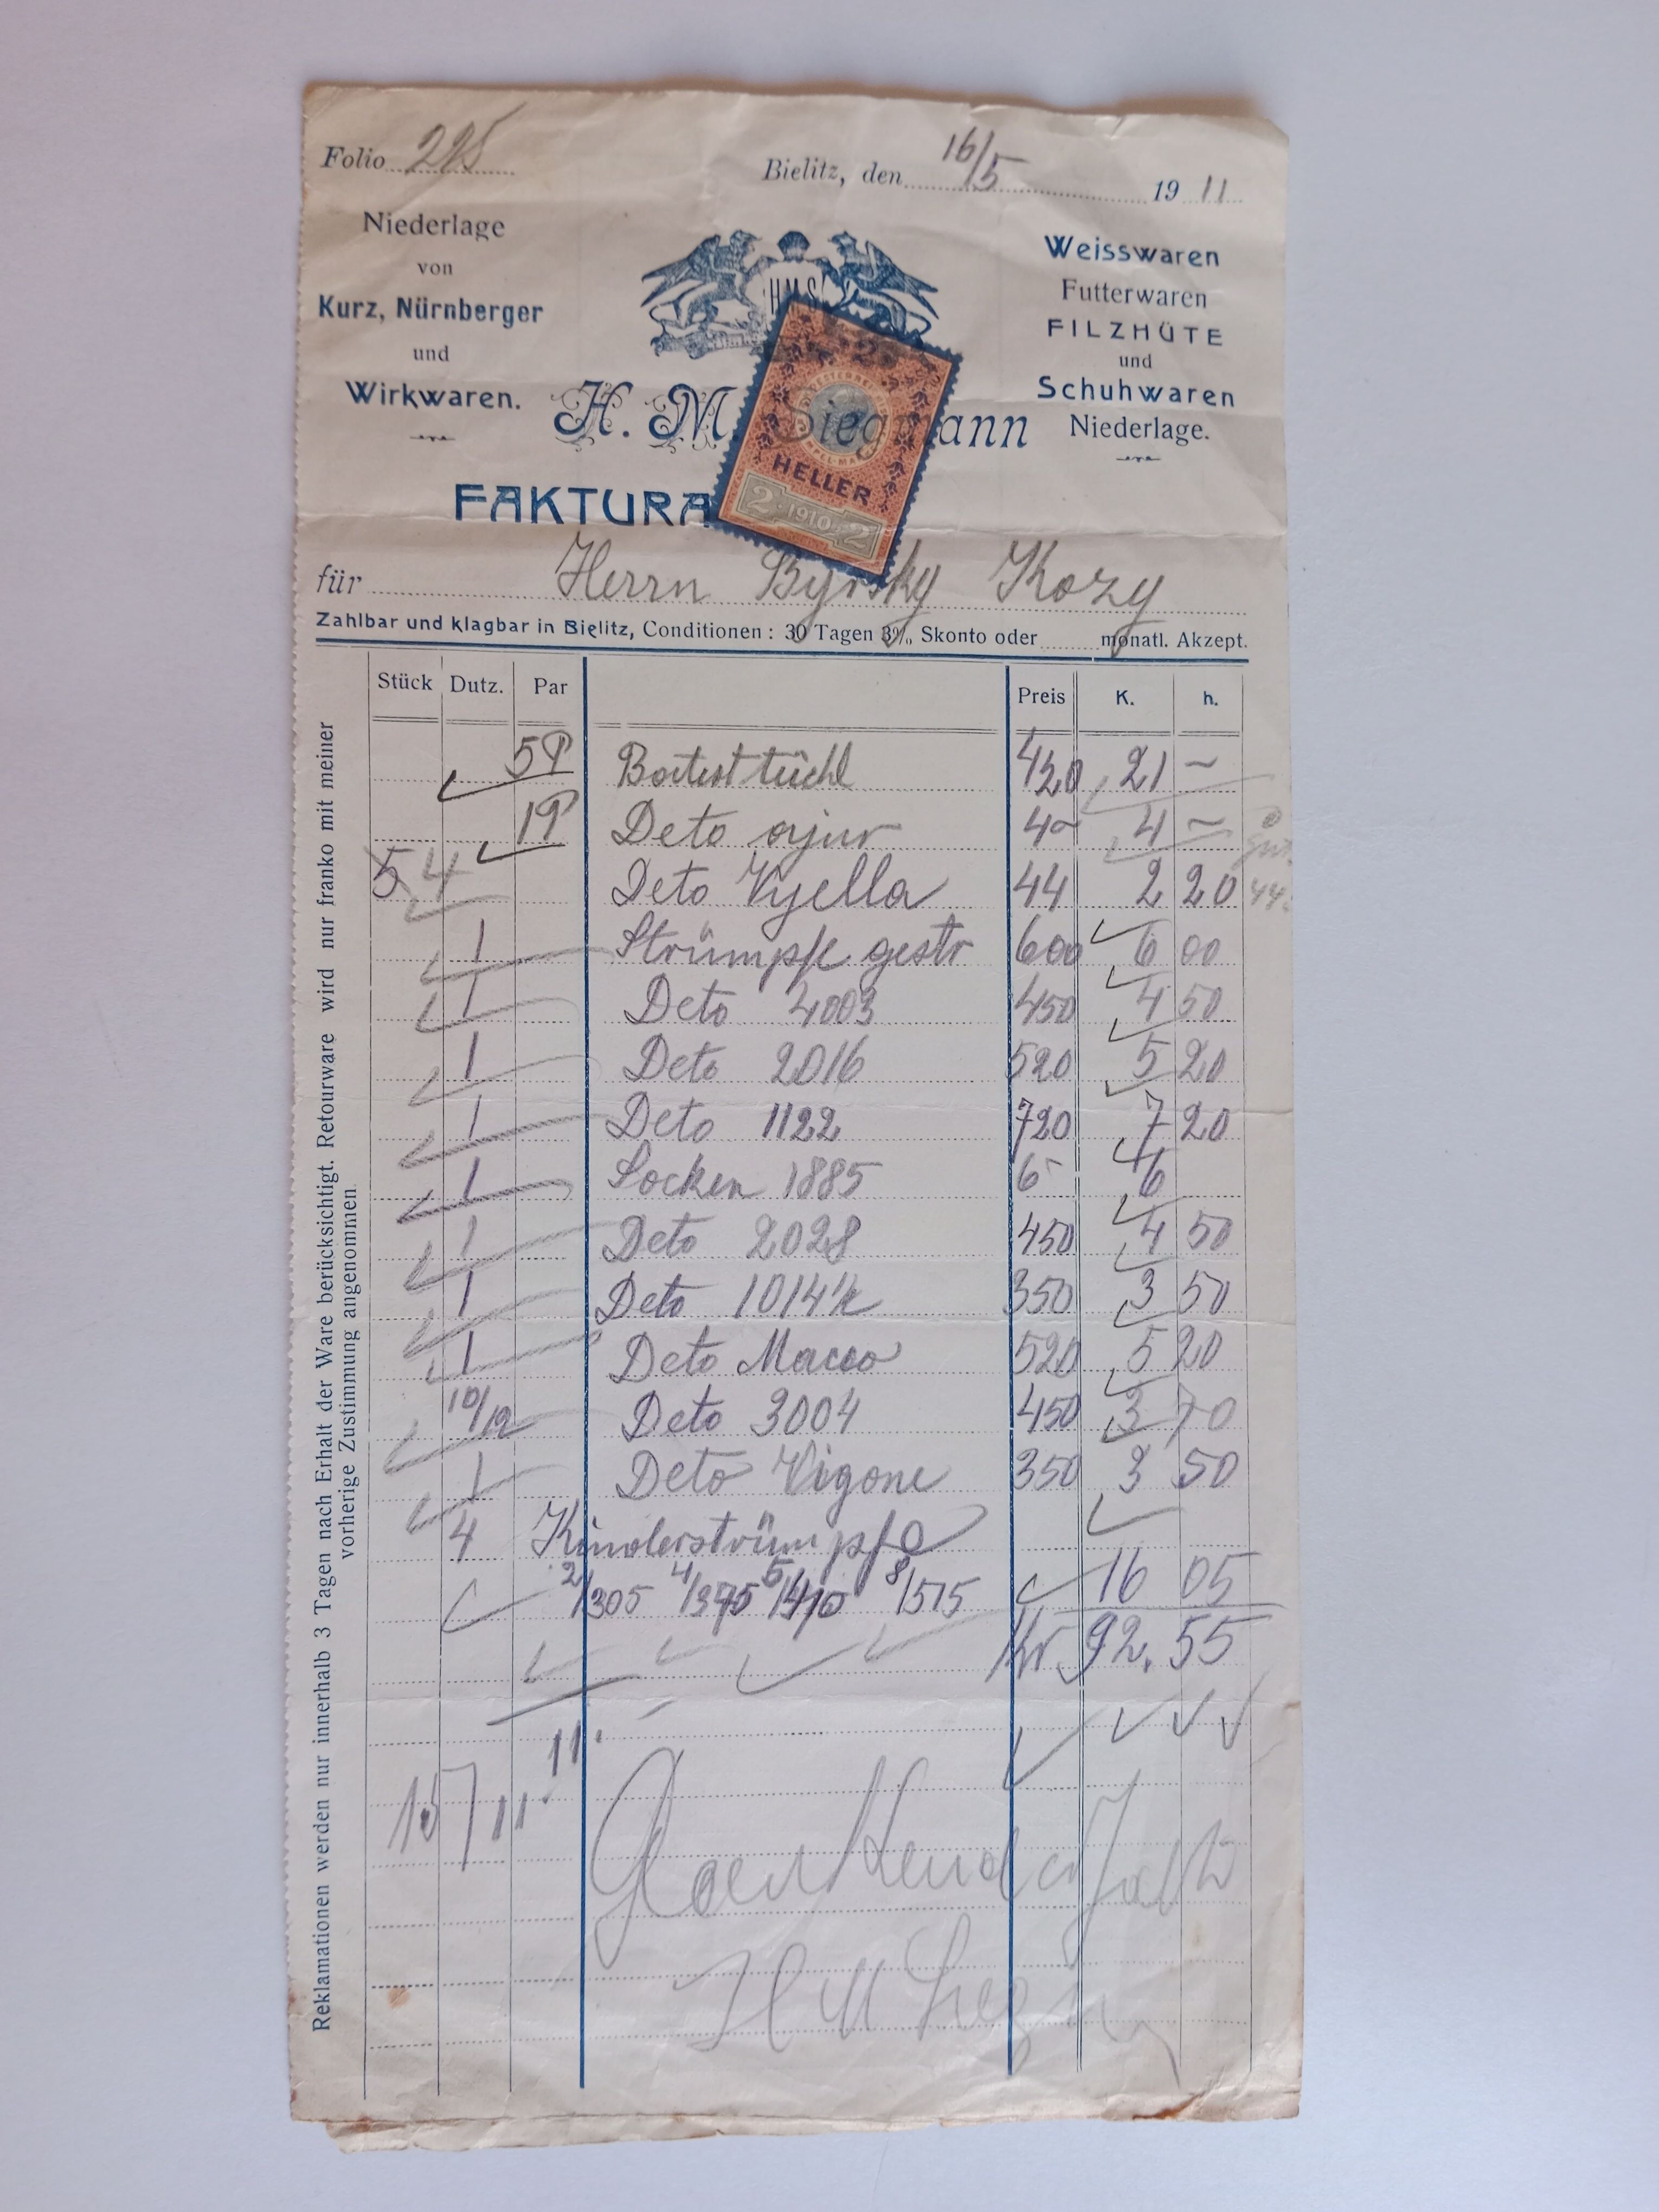 Folio 225
Bielitz, den 16/5 1911
Niederlage
von
Kurz, Nürnberger
und
Wirkwaren.
HMS
Weisswaren
Futterwaren
FILZHÜTE
und
Schuhwaren
Niederlage.
H. M. Siegmann
HELLER
2 1910 2
FAKTURA
für Herrn Byrsky Kozy
Zahlbar und klagbar in Bielitz, Conditionen: 30 Tagen 3% Skonto oder monatl. Akzept.
Stück Dutz. Par Preis K. h.
5P Batisttüchl 420 21 ~
1P Deto ajur 4~ 4 ~
5 4 Deto Vyella 44 2 20
1 Strümpfe gestr 600 6 00
1 Deto 4003 450 4 50
1 Deto 2016 520 5 20
1 Deto 1122 720 7 20
1 Socken 1885 6- 6
1 Deto 2028 450 4 50
1 Deto 1014 350 3 50
1 Deto Macco 520 5 20
10/12 Deto 3004 450 3 70
1 Deto Vigone 350 3 50
4 Kinderstrümpfe
2/305 4/375 5/410 8/515 16 05
Kr 92.55
11.
15/7 11.
Reklamationen werden nur innerhalb 3 Tagen nach Erhalt der Ware berücksichtigt. Retourware wird nur franko mit meiner
vorherige Zustimmung angenommen